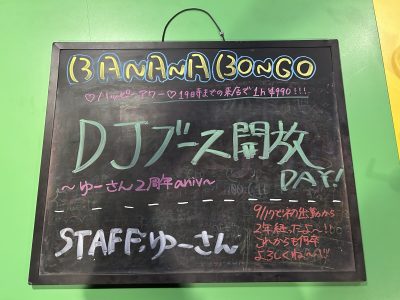 BANANA BONGO
♡ハッピーアワー♡19時までの来店で1h ¥990!!!
DJブース開放
DAY!
〜ゆーさん2周年aniv〜
STAFF:ゆーさん
9/17で初出勤から
2年経ったよ〜!!
これからも
よろしくね〜!!